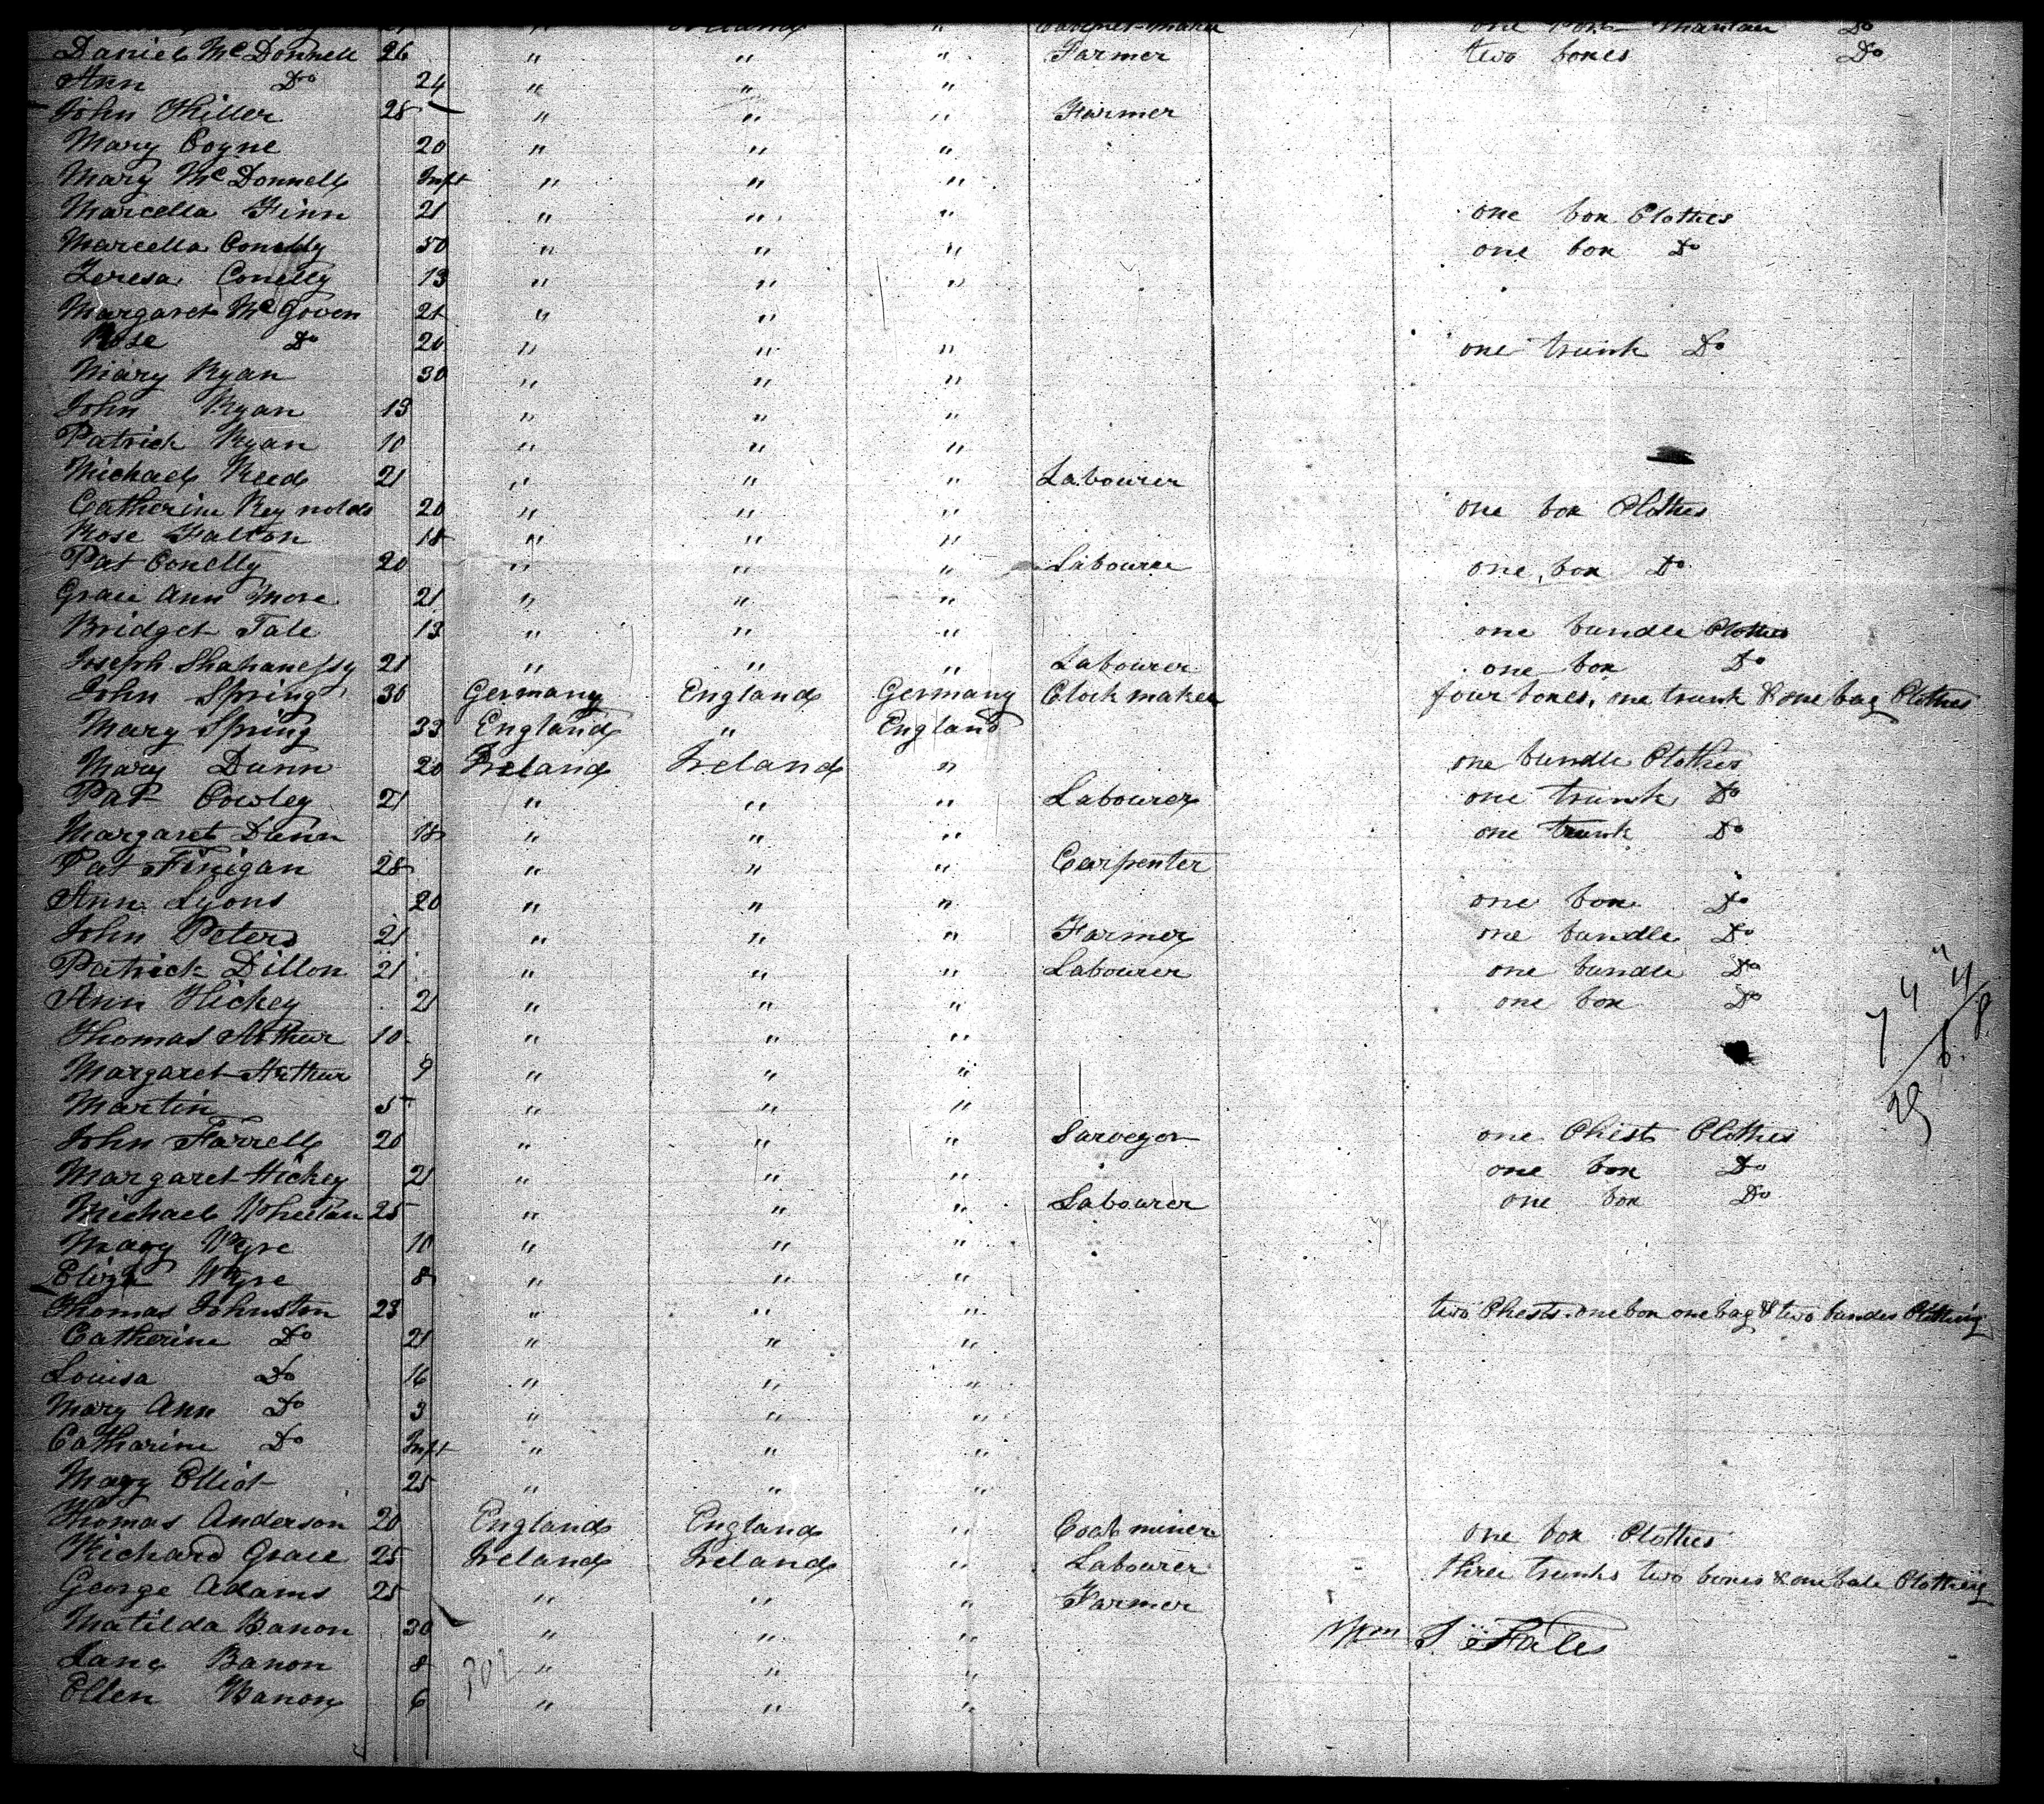 Cabinet-maker one Port Mantau Do
Daniel McDonnell 26 " " " Farmer two boxes Do
Ann Do 24 " " "
John Hiller 28 " " " Farmer
Mary Coyne 20 " " "
Mary McDonnell Inft " " "
Marcella Finn 21 " " " one box Clothes
Marcella Conelly 50 " " " one box Do
Teresa Conelly 13 " " "
Margaret McGoven 21 " "
Rose Do 20 " " " one trunk Do
Mary Ryan 30 " " "
John Ryan 13 " " "
Patrick Ryan 10 " " "
Michael Reed 21 " " " Labourer
Catherine Reynolds 20 " " " one box Clothes
Rose Falton 18 " " "
Pat Conelly 20 " " " Labourer one box Do
Grace Ann More 21 " " "
Bridget Tale 13 " " " one bundle Clothes
Joseph Shahanessy 21 " " " Labourer one box Do
John Spring 30 Germany England Germany Clock maker four boxes, one trunk & one bag Clothes
Mary Spring 33 England " England
Mary Dunn 20 Ireland Ireland " one bundle Clothes
Pat Cowley 21 " " " Labourer one trunk Do
Margaret Dunn 18 " " " one trunk Do
Pat Finigan 28 " " " Carpenter
Ann Lyons 20 " " " one box Do
John Peters 21 " " " Farmer one bundle Do
Patrick Dillon 21 " " " Labourer one bundle Do
Ann Hickey 21 " " " one box Do
Thomas Arthur 10 " " "
Margaret Arthur 9 " " "
Martin 5 " " "
John Farrell 20 " " " Surveyor one Chest Clothes
Margaret Hickey 21 " " " one box Do
Michael Wheelan 25 " " " Labourer one box Do
Mary Wyre 10 " " "
Eliza Wyre 8 " " "
Thomas Johnston 23 " " " two Chests one box one bag & two bundes Clothing
Catherine Do 21 " " "
Louisa Do 16 " " "
Mary Ann Do 3 " " "
Catharine Do Inft " " "
Mary Elliot 25 " " "
Thomas Anderson 20 England England " Coal miner one box Clothes
Richard Grace 25 Ireland Ireland " Labourer three trunks two boxes & one bale Clothing
George Adams 25 " " " Farmer
Matilda Banon 30 " " " Wm S. Fales
Jane Banon 8 " " "
Ellen Banon 6 " " "